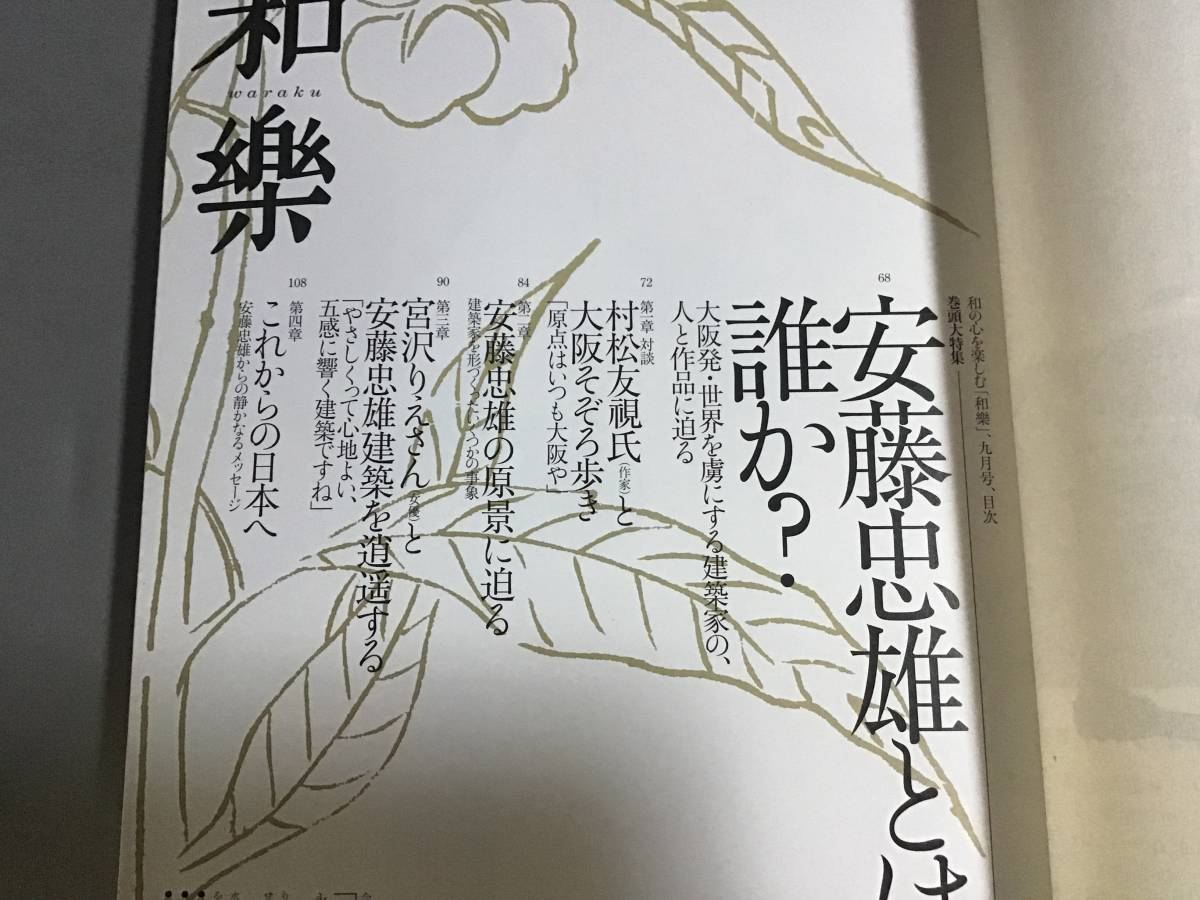 和の心を楽しむ「和樂」、九月号、目次
巻頭大特集
68
安藤忠雄とは
誰か?・
大阪発・世界を虜にする建築家の、
人と作品に迫る
72
第一章 対談
村松友視氏(作家)と
大阪そぞろ歩き
「原点はいつも大阪や」
84
第二章
安藤忠雄の原景に迫る
建築家を形づくったいくつかの事象
90
第三章
宮沢りえさん(女優)と
安藤忠雄建築を逍遥する
「やさしくって心地よい、
五感に響く建築ですね」
108
第四章
これからの日本へ
安藤忠雄からの静かなるメッセージ
和
waraku
樂